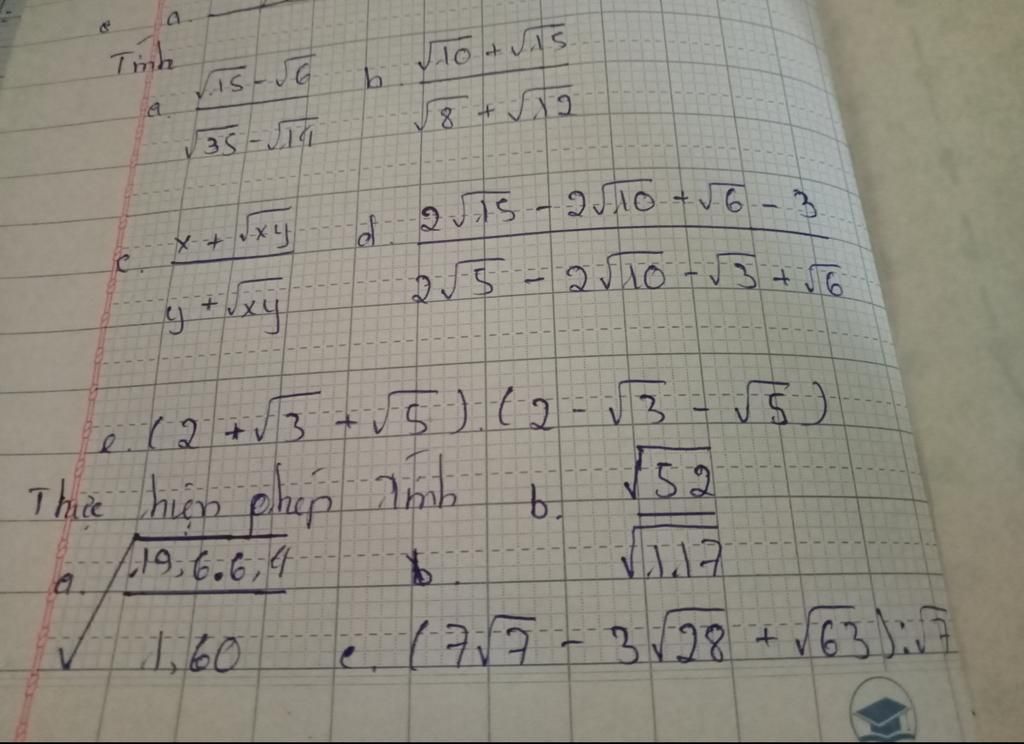 a.
Tính
a. (√15 - √6)/(√35 - √14) b. (√10 + √15)/(√8 + √12)
c. (x + √xy)/(y + √xy) d. (2√15 - 2√10 + √6 - 3)/(2√5 - 2√10 - √3 + √6)
e. (2 + √3 + √5).(2 - √3 - √5)
Thực hiện phép tính
a. √(19,6.6,4/1,60) b. √52/√117
c. (7√7 - 3√28 + √63):√7